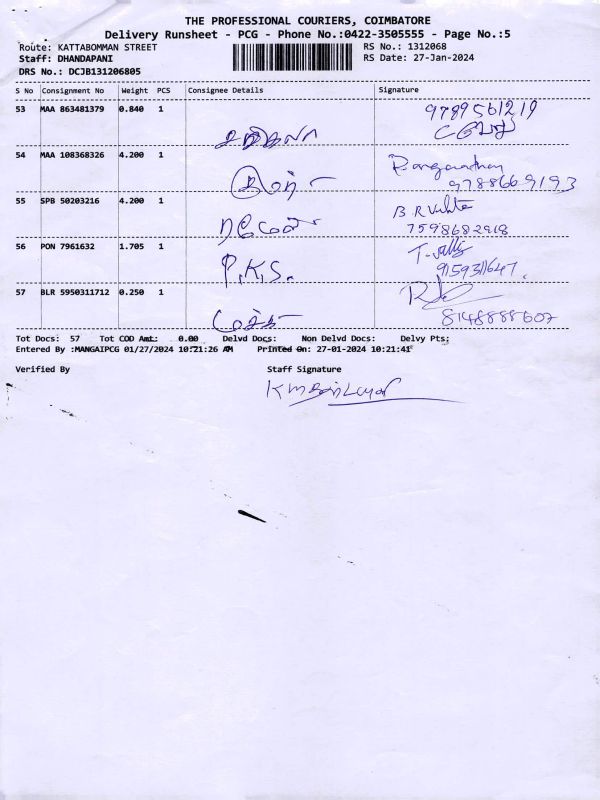 THE PROFESSIONAL COURIERS, COIMBATORE
Delivery Runsheet - PCG - Phone No.:0422-3505555 - Page No.:5
Route: KATTABOMMAN STREET RS No.: 1312068
Staff: DHANDAPANI RS Date: 27-Jan-2024
DRS No.: DCJB131206805
S No Consignment No Weight PCS Consignee Details Signature
53 MAA 863481379 0.840 1 9789561219
54 MAA 108368326 4.200 1 9788669193
55 SPB 50203216 4.200 1 7598682918
56 PON 7961632 1.705 1 P.K.S. 9159311647.
57 BLR 5950311712 0.250 1 8148888607
Tot Docs: 57 Tot COD Amt: 0.00 Delvd Docs: Non Delvd Docs: Delvy Pts:
Entered By :MANGAIPCG 01/27/2024 10:21:26 AM Printed On: 27-01-2024 10:21:41
Verified By Staff Signature